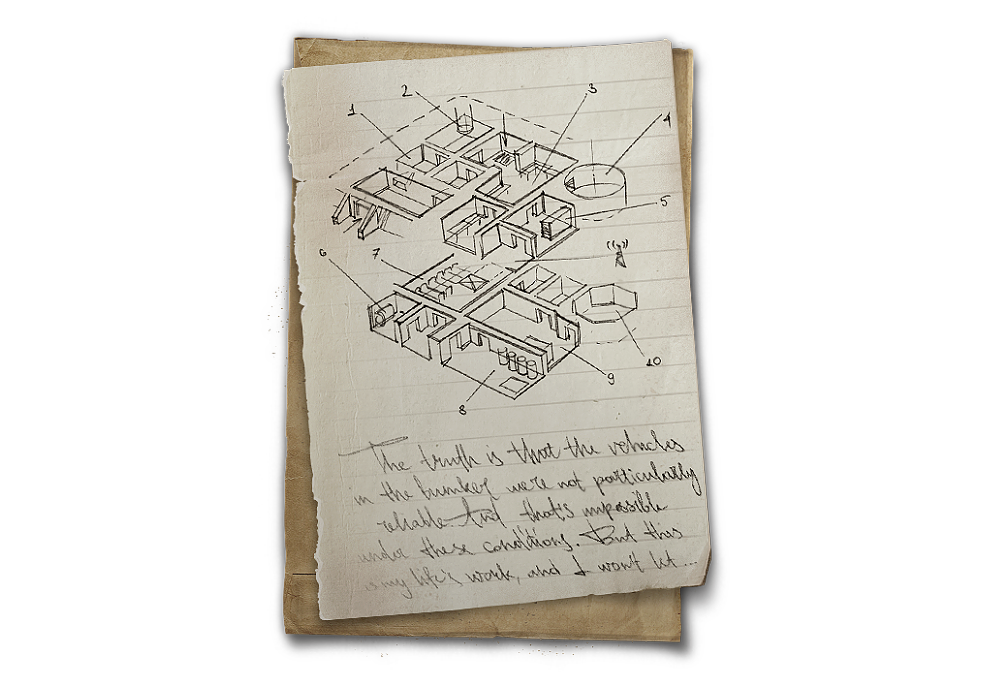 1
2
3
4
5
6
7
8
9
10
The truth is that the vehicles
in the bunker were not particularly
reliable. And that's impossible
under these conditions. But this
is my life's work, and I won't let ...